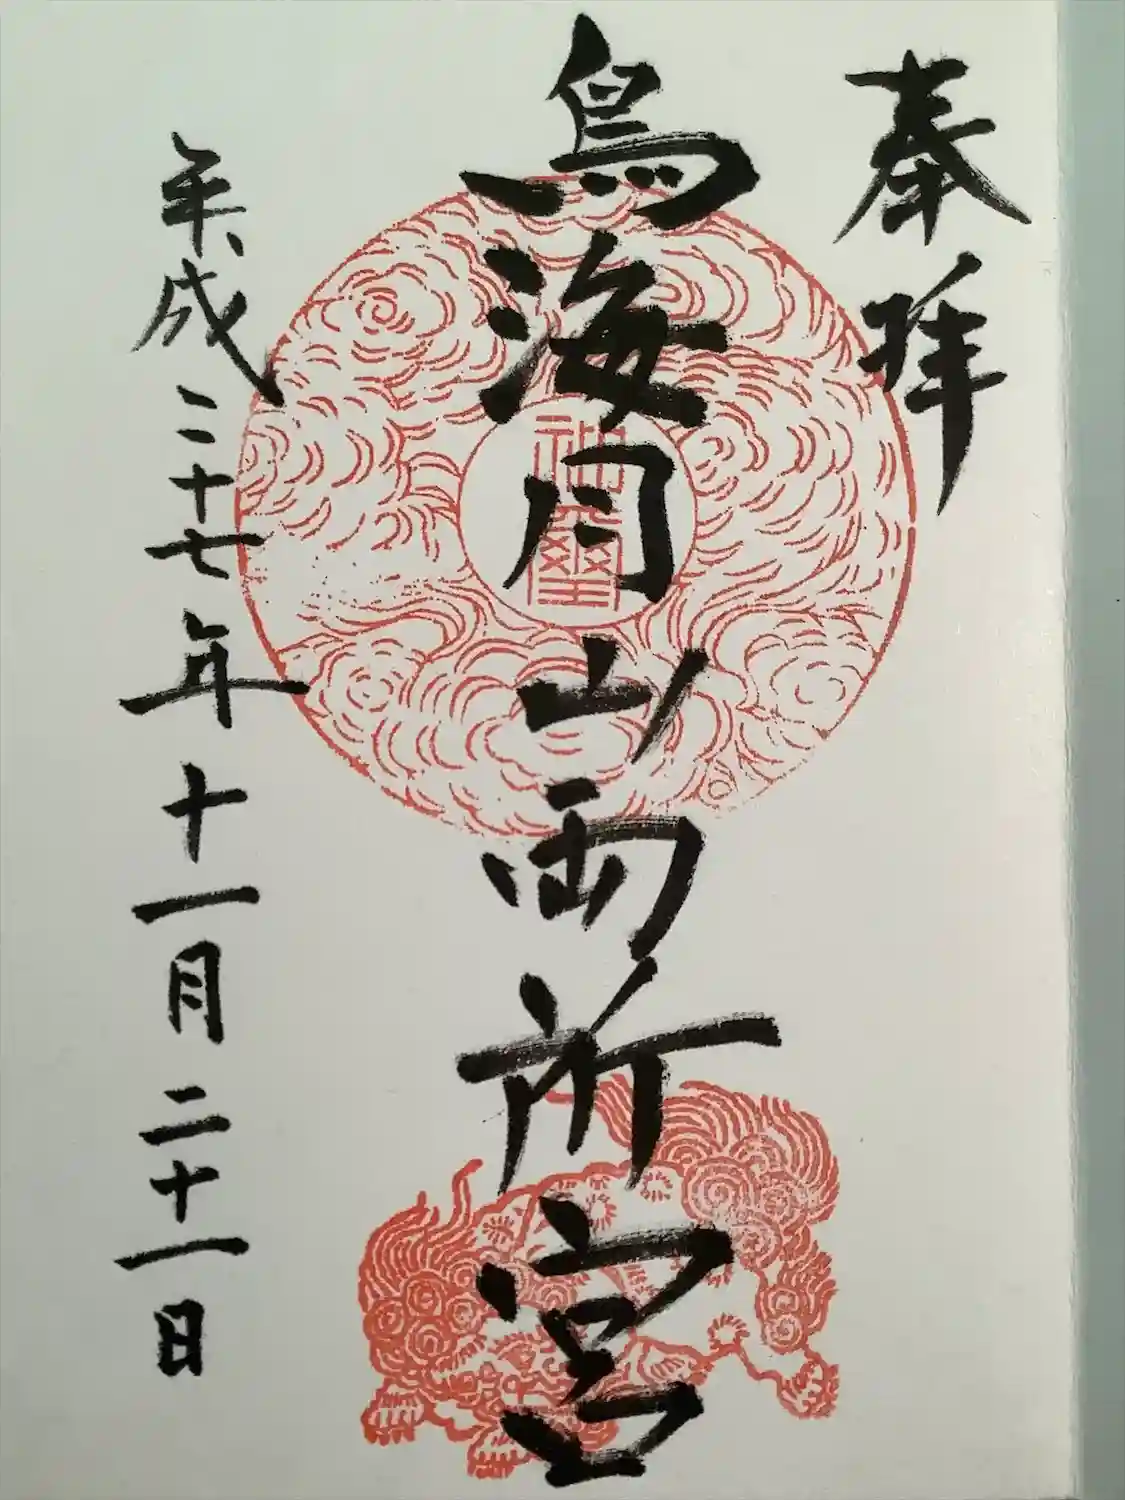 奉拝
鳥海月山両所宮
平成二十七年十一月二十一日
神璽